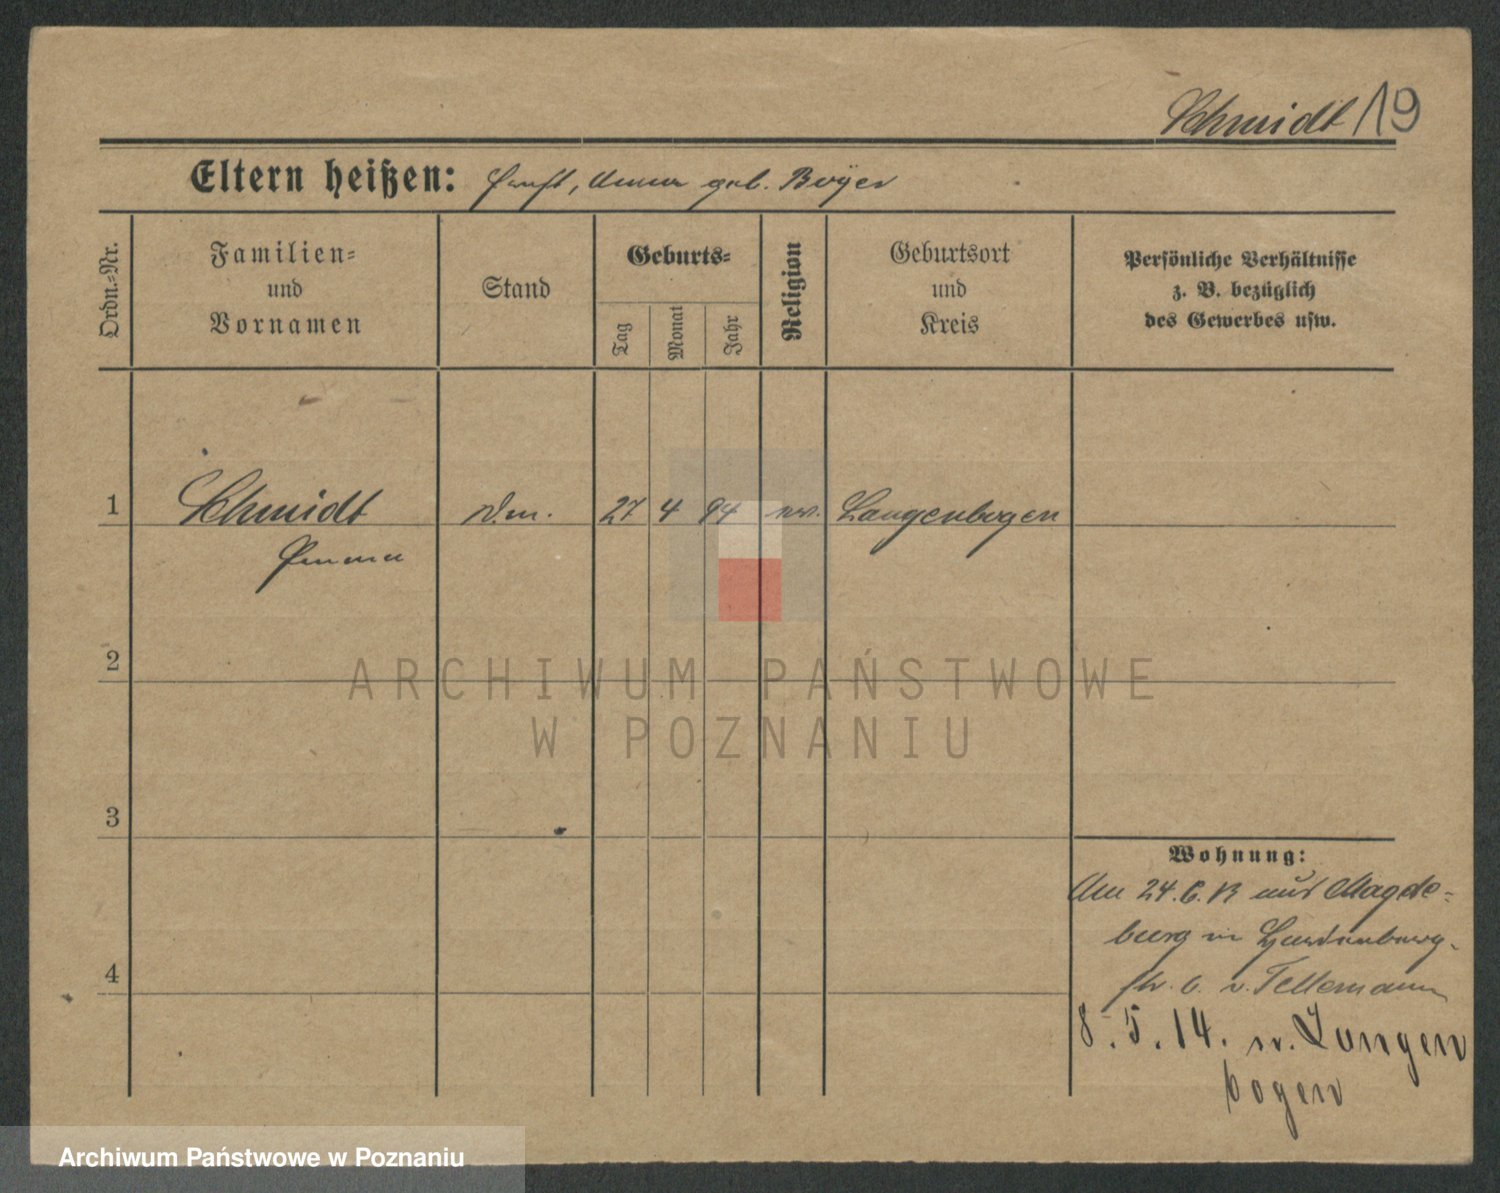 Schmidt 19
Eltern heißen: Ernst, Anna geb. Beyer
Ordn.=Nr.
Familien=
und
Vornamen
Stand
Geburts=
Tag
Monat
Jahr
Religion
Geburtsort
und
Kreis
Persönliche Verhältnisse
z. B. bezüglich
des Gewerbes usw.
1 Schmidt 27 4 94 Langenbogen
Emma
2
3
4
Wohnung:
Am 24.6.13 aus Magde=
burg in Hardenberg-
str. 6. v. Tellemann
8.5.14. n. Langen
bogen
ARCHIWUM PAŃSTWOWE
W POZNANIU
Archiwum Państwowe w Poznaniu